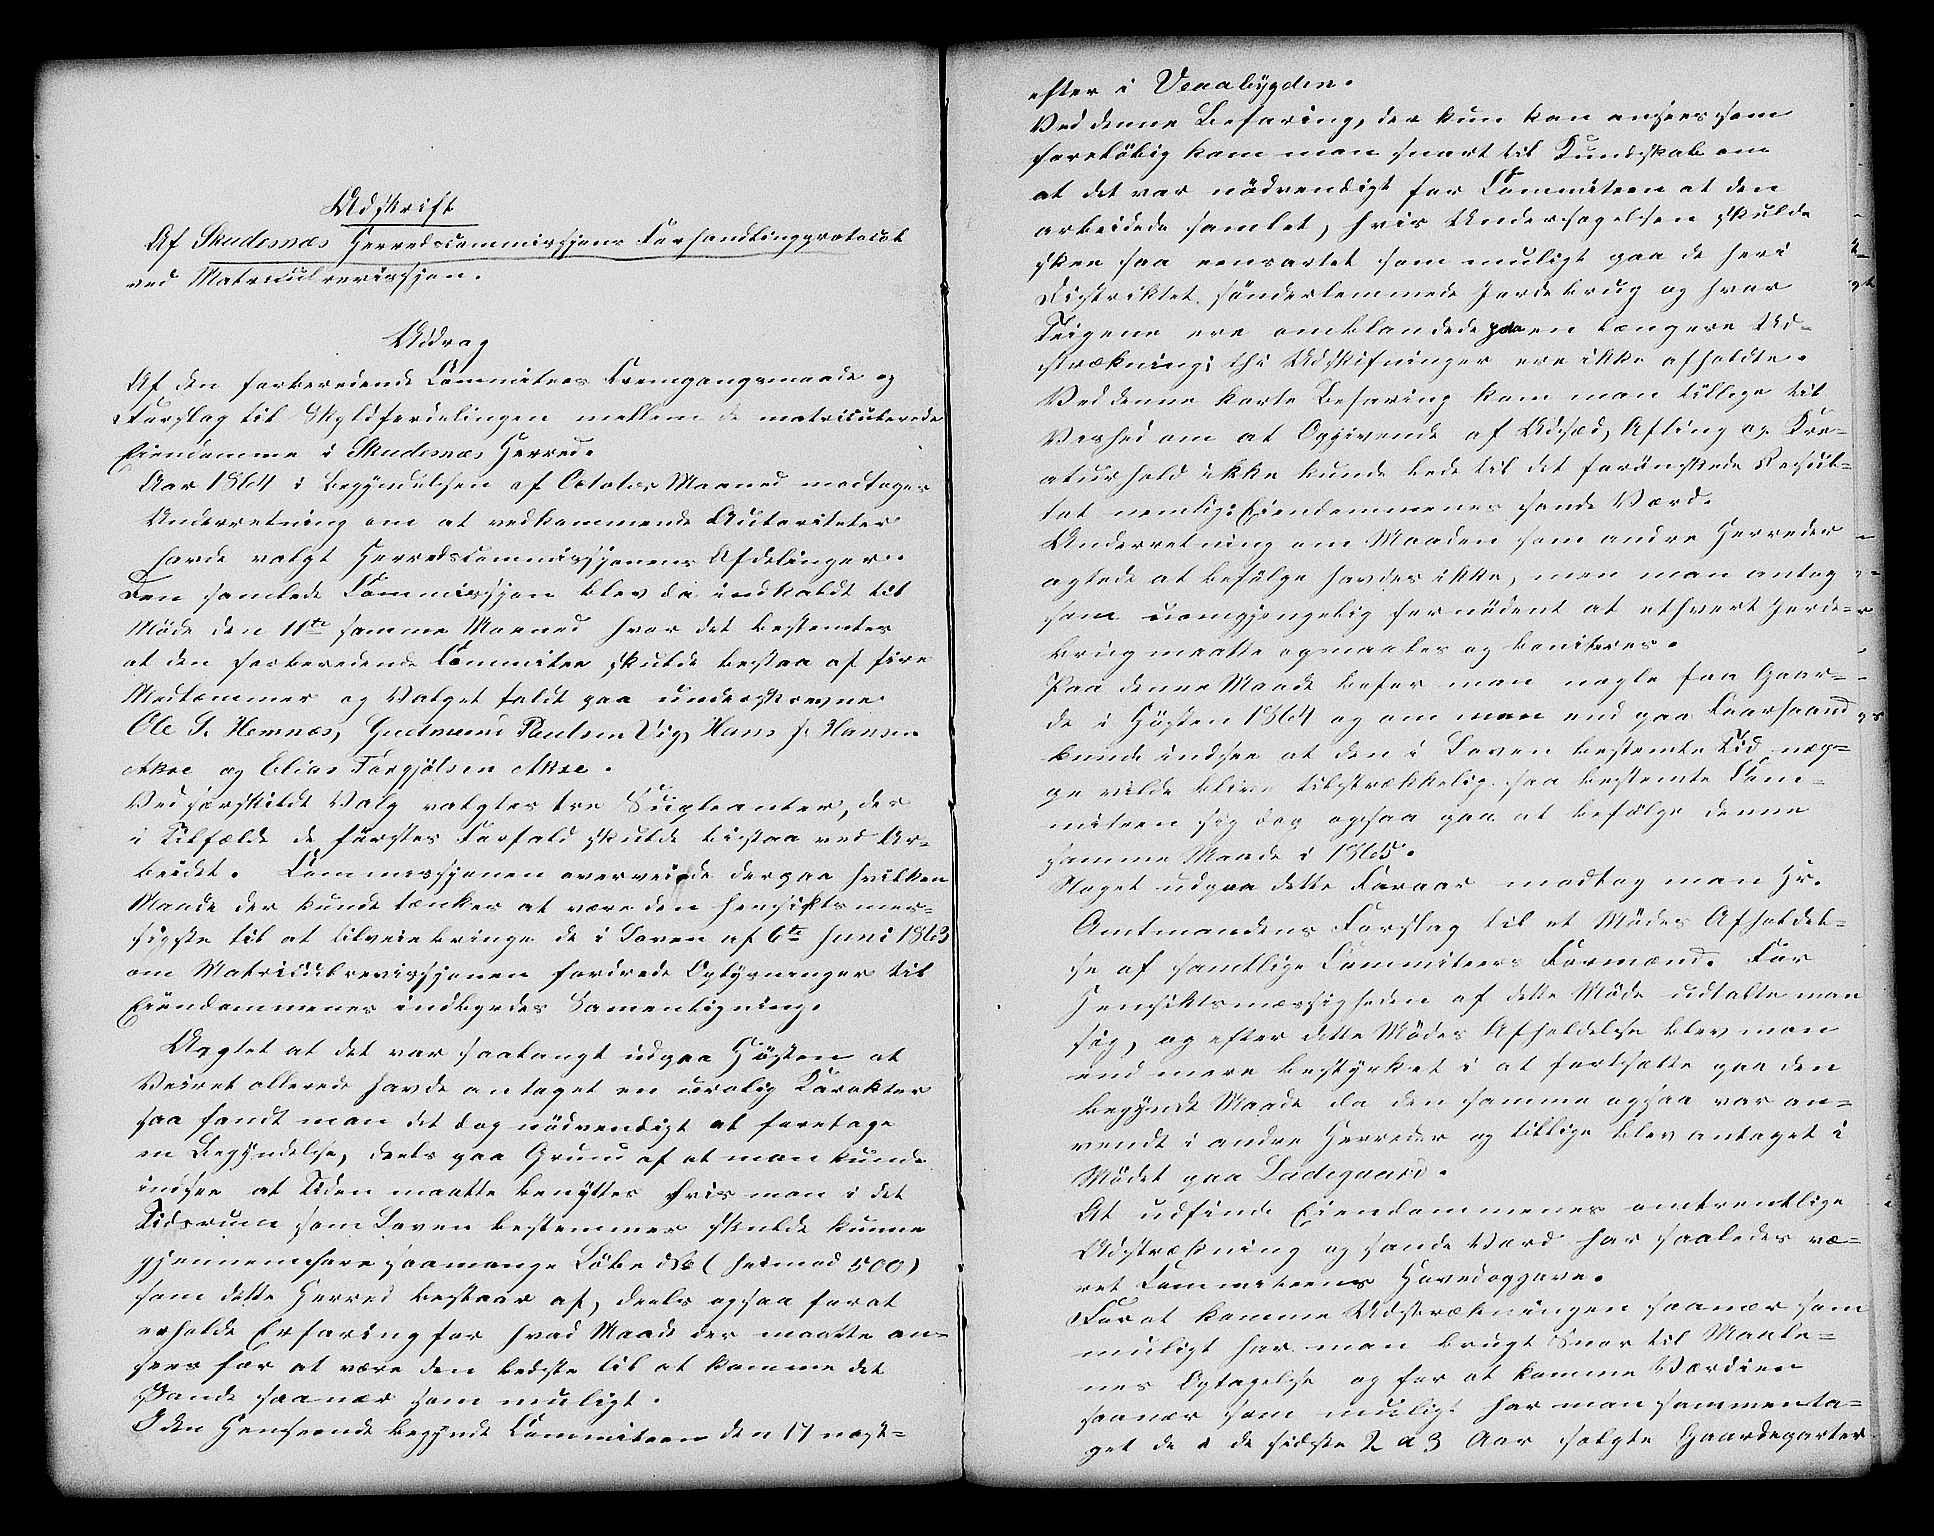 Udskrift
Af Skudesnæs Herredscommissions Forhandlingsprotocol
ved Matriculrevissjon.
Uddrag
Af den forberedende Commitees Fremgangsmaade og
Forslag til Skyldfordelingen mellem de matriculerede
Eiendomme i Skudesnæs Herred.
Aar 1864 i Begyndelsen af Octobr Maaned modtoges
Underretning om at vedkommende Autoriteter
havde valgt Herredscommissjonens Afdelinger.
Den samlede Commissjon blev da indkaldt til
Møde den 11te samme Maaned hvor det bestemtes
at den forberedende Commitee skulde bestaa af fire
Medlemmer og Valget faldt paa underskrevne
Ole S. Hemnæs, Gudmund Paulsen Vig, Hans J. Hansen
Akre og Elias Torgjølsen Akre.
Ved særskildt Valg valgtes tre Supleanter, der
i Tilfælde de førstes Forfald skulde bistaa ved Ar-
beidet. Commissjonen overveiede derpaa hvilken
Maade der kunde tænkes at være den hensiktsmæs-
sigste til at tilveiebringe de i Loven af 6te Juni 1863
om Matriculrevissjonen fordrede Oplysninger til
Eiendommenes indbyrdes Samenligning.
Uagtet at det var saalangt udpaa Høsten at
Veiret allerede havde antaget en urolig Karakter
saa fandt man det dog nødvendigt at foretage
en Begyndelse, deels paa Grund af at man kunde
indsee at Tiden maatte benyttes hvis man i det
Tidsrum som Loven bestemmer skulde kunne
gjennemføre saamange Løbe (henimod 500)
som dette Herred bestaar af, deels ogsaa forat
erholde Erfaring for hvad Maade der maatte an-
sees for at være den bedste til at komme det
Sande saanær som muligt.
I den Henseende begynde Commiteen den 17 næst-
efter i Veaabygden.
Ved denne Befaring, der kun kan ansees som
foreløbig kom man snart til Kundskab om
at det var nødvendigt for Commiteen at den
arbeidede samlet, hvis Undersøgelsen skulde
skee saa eensartet som muligt paa de heri
Distriktet sønderlemmede Jordebrug og hvor
Teigene ere omblandede paa en længere Ud-
strækning; thi Udskiftninger ere ikke afholdte.
Ved denne korte Befaring kom man tillige til
Vished om at Opgivende af Udsæd, Afling og Kre-
aturhold ikke kunde lede til det forønskede Resul-
tat nemlig: Eiendommenes sande Værd.
Underretning om Maaden som andre Herreder
agtede at befølge havdes ikke, men man antog
som uomgjengelig fornødent at ethvert Jorde-
brug maatte opmaales og boniteres.
Paa denne Maade befor man nogle faa Gaar-
de i Høsten 1864 og om man end paa Foorhaand
kunde indsee at den i Loven bestemte Tid nep-
pe vilde blive tilstrækkelig saa bestemte Com-
miteen sig dog ogsaa paa at befølge denne
samme Maade i 1865.
Noget udpaa dette Foraar modtog man Hr.
Amtmandens Forslag til et Mødes Afholdel-
se af samtlige Commiteers Formænd. For
Hensiktsmæssigheden af dette Møde udtalte man
sig, og efter dette Mødes Afholdelse blev man
end mere bestyrket i at fortsætte paa den
begyndte Maade da den samme ogsaa var an-
vendt i andre Herreder og tillige blev antaget i
Mødet paa Ladegaard.
At udfinde Eiendommenes omtrentlige
Udstrækning og sande Værd har saaledes væ-
ret Commiteens Hovedopgave.
Forat komme Udstrækningen saanær som
muligt har man brugt Snor til Maale-
nes Optagelse og for at komme Værdien
saanær som muligt har man sammenta-
get de i de sidste 2 a 3 Aar solgte Gaardeparter